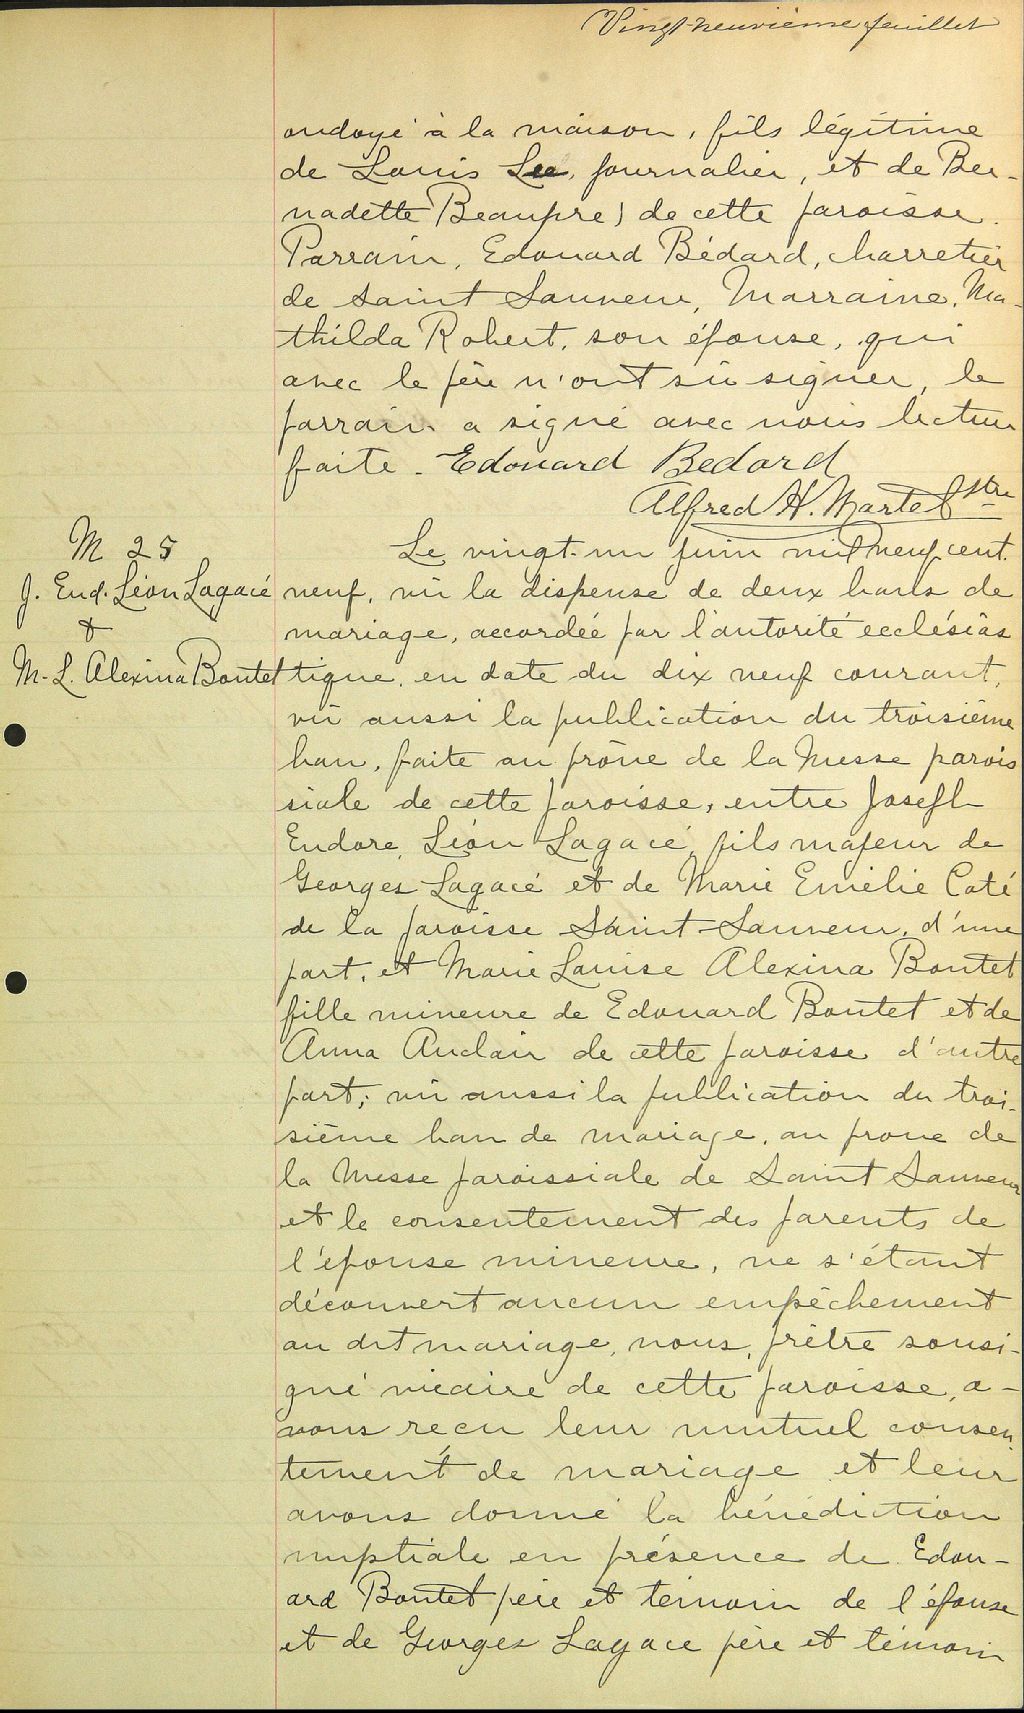 Vingt-neuvième feuillet
ondoyé à la maison, fils légitime
de Louis Lee, journalier, et de Ber-
nadette Beaupré) de cette paroisse.
Parrain, Edouard Bédard, charretier
de Saint Sauveur, Marraine, Ma-
thilda Robert, son épouse, qui
avec le père n'ont sû signer, le
parrain a signé avec nous lecture
faite. Edouard Bedard
Alfred H. Martel ptre
M 25
J. End. Léon Lagacé
&
M.-L. Alexina Boutet
Le vingt-un juin mil neuf cent
neuf, vû la dispense de deux bans de
mariage, accordée par l'autorité ecclésias
tique, en date du dix neuf courant,
vû aussi la publication du troisième
ban, faite au prône de la Messe parois
siale de cette paroisse, entre Joseph
Endore, Léon Lagacé, fils majeur de
Georges Lagacé et de Marie Emélie Coté
de la paroisse Saint-Sauveur, d'une
part, et Marie Louise Alexina Boutet
fille mineure de Edouard Boutet et de
Anna Auclair de cette paroisse d'autre
part; vû aussi la publication du troi-
sième ban de mariage, au prone de
la Messe paroissiale de Saint Sauveur
et le consentement des parents de
l'épouse mineure, ne s'étant
découvert aucun empêchement
au dit mariage, nous, prêtre sousi-
gné vicaire de cette paroisse, a-
vons reçu leur mutuel consen
tement de mariage et leur
avons donné la bénédiction
nuptiale en présence de Edou-
ard Boutet père et témoin de l'épouse
et de Georges Lagace père et témoin